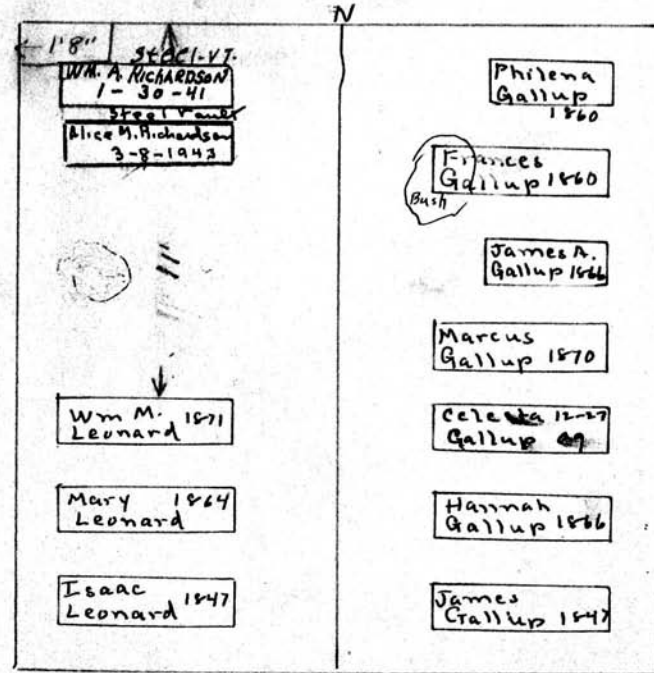 N
1'8"
Steel-VT.
WM. A. RICHARDSON
1-30-41
Steel Vault
Alice M. Richardson
3-8-1943
Wm M. 1871
Leonard
Mary 1864
Leonard
Isaac
Leonard 1847
Philena
Gallup
1860
Frances
Gallup 1860
Bush
James A.
Gallup 1866
Marcus
Gallup 1870
Celesta 12-27
Gallup
Hannah
Gallup 1866
James
Gallup 1847